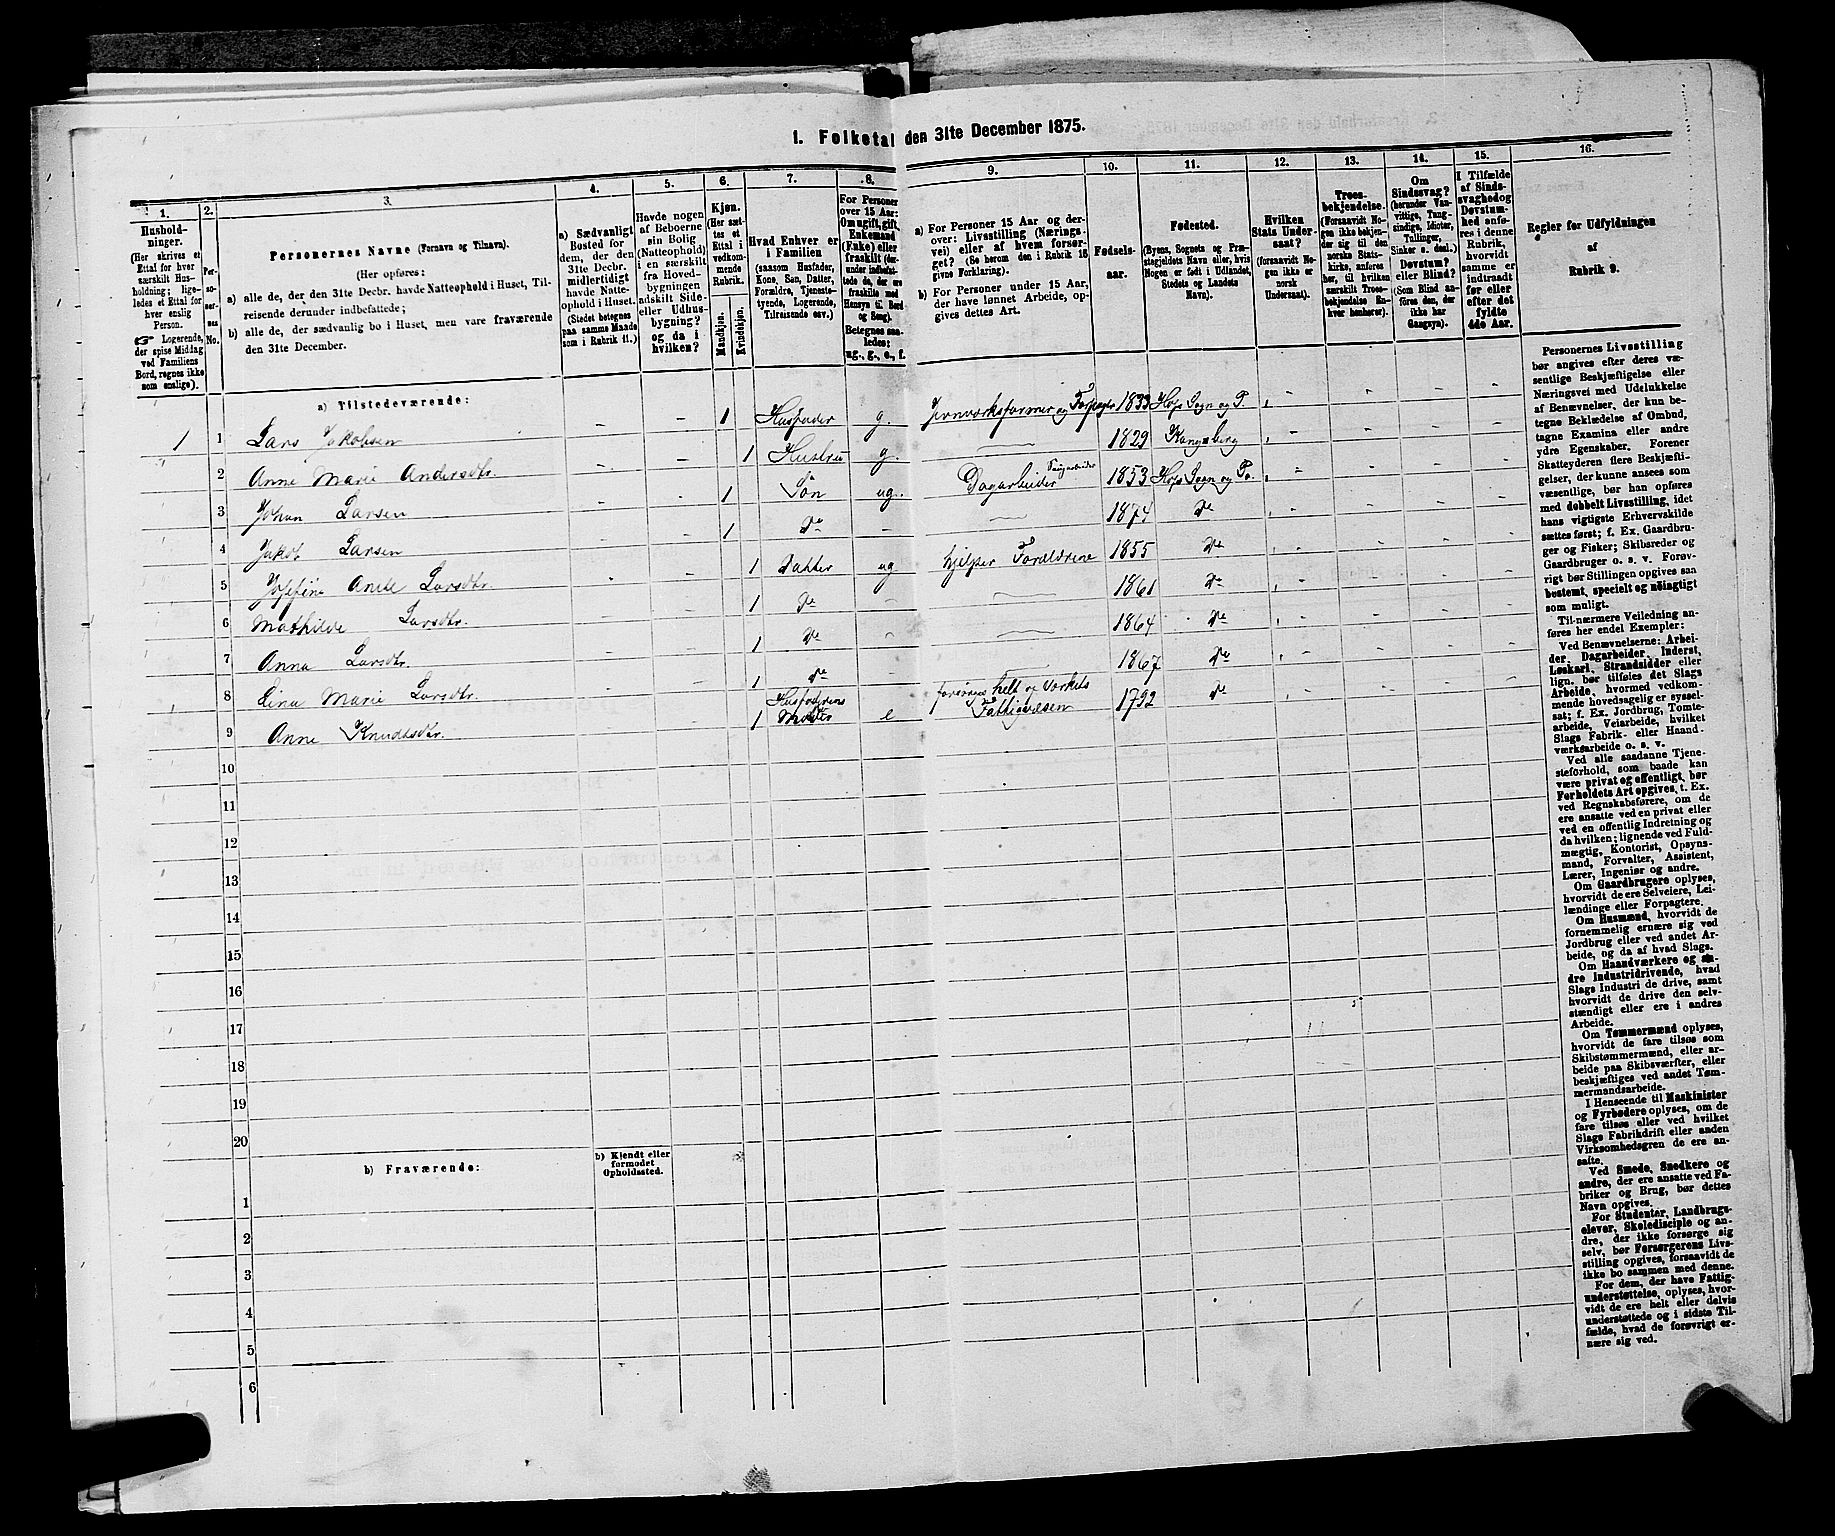 1. Folketal den 31te December 1875.
1.
Hushold-
ninger.
(Her skrives et
Ettal for hver
særskilt Hus-
holdning; lige-
ledes et Ettal for
hver enslig
Person.
☞ Logerende,
der spise Middag
ved Familiens
Bord, regnes ikke
som enslige).
2.
Per-
so-
ner-
nes
No.
3.
Personernes Navne (Fornavn og Tilnavn).
(Her opføres:
a) alle de, der den 31te Decbr. havde Natteophold i Huset, Til-
reisende derunder indbefattede;
b) alle de, der sædvanlig bo i Huset, men vare fraværende
den 31te December.
4.
a) Sædvanligt
Bosted for
dem, der den
31te Decbr.
midlertidigt
havde Natte-
ophold i Huset.
(Stedet betegnes
paa samme Maade
som i Rubrik 11.)
5.
Havde nogen
af Beboerne
sin Bolig
(Natteophold)
i en særskilt
fra Hoved-
bygningen
adskilt Side-
eller Udhus-
bygning?
og da i
hvilken?
6.
Kjøn.
(Her sæt-
tes et
Ettal i
vedkom-
mende
Rubrik.
Mandkjøn.
Kvindekjøn.
7.
Hvad Enhver er
i Familien
(saasom Husfader,
Kone, Søn, Datter,
Forældre, Tjeneste-
tyende, Logerende,
Tilreisende osv.)
8.
For Personer
over 15 Aar:
Om ugift, gift,
Enkemand
(Enke) eller
fraskilt (der-
under indbefat-
tede de, der ere
fraskilte med
Hensyn til Bord
og Seng).
Betegnes saa-
ledes:
ug., g., e., f.
9.
a) For Personer 15 Aar og der-
over: Livsstilling (Nærings-
vei) eller af hvem forsør-
get? (Se herom den i Rubrik 16
givne Forklaring).
b) For Personer under 15 Aar,
der have lønnet Arbeide, op-
gives dettes Art.
10.
Fødsels-
aar.
11.
Fødested.
(Byens, Sognets og Præ-
stegjeldets Navn eller, hvis
Nogen er født i Udlandet,
Stedets og Landets
Navn).
12.
Hvilken
Stats Under-
saat?
(forsaavidt No-
gen ikke er
norsk
Undersaat).
13.
Troes-
bekjendelse.
(Forsaavidt No-
gen ikke bekjen-
der sig til den
norske Stats-
kirke, anføres
her, til hvilken
særskilt Troes-
bekjendelse En-
hver henhører).
14.
Om
Sindssvag?
(herunder Van-
vittige, Tung-
sindige, Idioter,
Tullinger,
Sinker o. desl.)
Døvstum?
eller Blind?
(Som Blind an-
føres den, der
ikke har
Gangsyn).
15.
I Tilfælde
af Sinds-
svaghed og
Døvstum-
hed anfø-
res i denne
Rubrik,
hvorvidt
samme er
indtraadt
før eller
efter det
fyldte
4de Aar.
16.
Regler for Udfyldningen
af
Rubrik 9.
a) Tilstedeværende:
1 1 Lars Jakobsen – – 1 Husfader g. Jernværksformer og Forpagter 1833 Hofs Sogn og P.
2 Anne Marie Andersdtr. – – 1 Hustru g. – 1829 Kongsberg
3 Johan Larsen – – 1 Søn ug. Dagarbeider 1853 Hofs Sogn og P.
4 Jakob Larsen – – 1 do – – 1874 do
5 Josefine Anete Larsdtr. – – 1 Datter ug hjelper Forældrene 1855 do
6 Mathilde Larsdtr. – – 1 do – – 1861 do
7 Anna Larsdtr. – – 1 do – – 1864 do
8 Lina Marie Larsdtr. – – 1 do – – 1867 do
9 Anne Knudsdtr. – – 1 Husfaderens Moder e forsørges helt og Fattigvæsen 1792 do
10
11
12
13
14
15
16
17
18
19
20
b) Fraværende:
b) Kjendt eller
formodet
Opholdssted.
1
2
3
4
5
6
Personernes Livsstilling
bør angives efter deres væ-
sentlige Beskjæftigelse eller
Næringsvei med Udelukkelse
af Benævnelser, der kun be-
tegne Beklædelse af Ombud,
tagne Examina eller andre
ydre Egenskaber. Forener
Skatteyderen flere Beskjæfti-
gelser, der kunne ansees som
væsentlige, bør han opføres
med dobbelt Livsstilling, idet
hans vigtigste Erhvervskilde
sættes først; f. Ex. Gaardbru-
ger og Fisker; Skibsreder og
Gaardbruger o. s. v. Forøv-
rigt bør Stillingen opgives saa
bestemt, specielt og nøiagtigt
som muligt.
Til nærmere Veiledning an-
føres her endel Exempler:
Ved Benævnelserne: Arbei-
der, Dagarbeider, Inderst,
Løskarl, Strandsidder eller
lign. bør tilføies det Slags
Arbeide, hvormed vedkom-
mende hovedsagelig er syssel-
sat; f. Ex. Jordbrug, Tomte-
arbeide, Veiarbeide, hvilket
Slags Fabrik- eller Haand-
værksarbeide o. s. v.
Ved alle saadanne Tjene-
steforhold, som baade kan
være privat og offentligt, bør
Forholdets Art opgives, t. Ex.
ved Regnskabsførere, om de
ere ansatte ved en privat eller
ved en offentlig Indretning og
da hvilken; lignende ved Fuld-
mægtig, Kontorist, Opsyns-
mand, Forvalter, Assistent,
Lærer, Ingeniør og andre.
Om Gaardbrugere oplyses,
hvorvidt de ere Selveiere, Lei-
lændinge eller Forpagtere.
Om Husmænd, hvorvidt de
fornemmelig ernære sig ved
Jordbrug eller ved andet Ar-
beide, og da af hvad Slags.
Om Haandværkere og an-
dre Industridrivende, hvad
Slags Industri de drive, samt
hvorvidt de drive den selv-
stændigt eller ere i andres
Arbeide.
Om Tømmermænd oplyses,
hvorvidt de fare tilsøs som
Skibstømmermænd, eller ar-
beide paa Skibsværfter, eller
beskjæftiges ved andet Tøm-
mermandsarbeide.
I Henseende til Maskinister
og Fyrbødere oplyses, om de
fare tilsøs eller ved hvilket
Slags Fabrikdrift eller anden
Virksomhedsgren de ere an-
satte.
Ved Smede, Snedkere og
andre, der ere ansatte ved Fa-
briker og Brug, bør dettes
Navn opgives.
For Studenter, Landbrugs-
elever, Skoledisciple og an-
dre, der ikke forsørge sig
selv, bør Forsørgerens Livs-
stilling opgives, forsaavidt de
ikke bo sammen med denne.
For dem, der have Fattig-
understøttelse, oplyses, hvor-
vidt de ere helt eller delvis
understøttede og i sidste Til-
fælde, hvad de forøvrigt er-
nære sig ved.